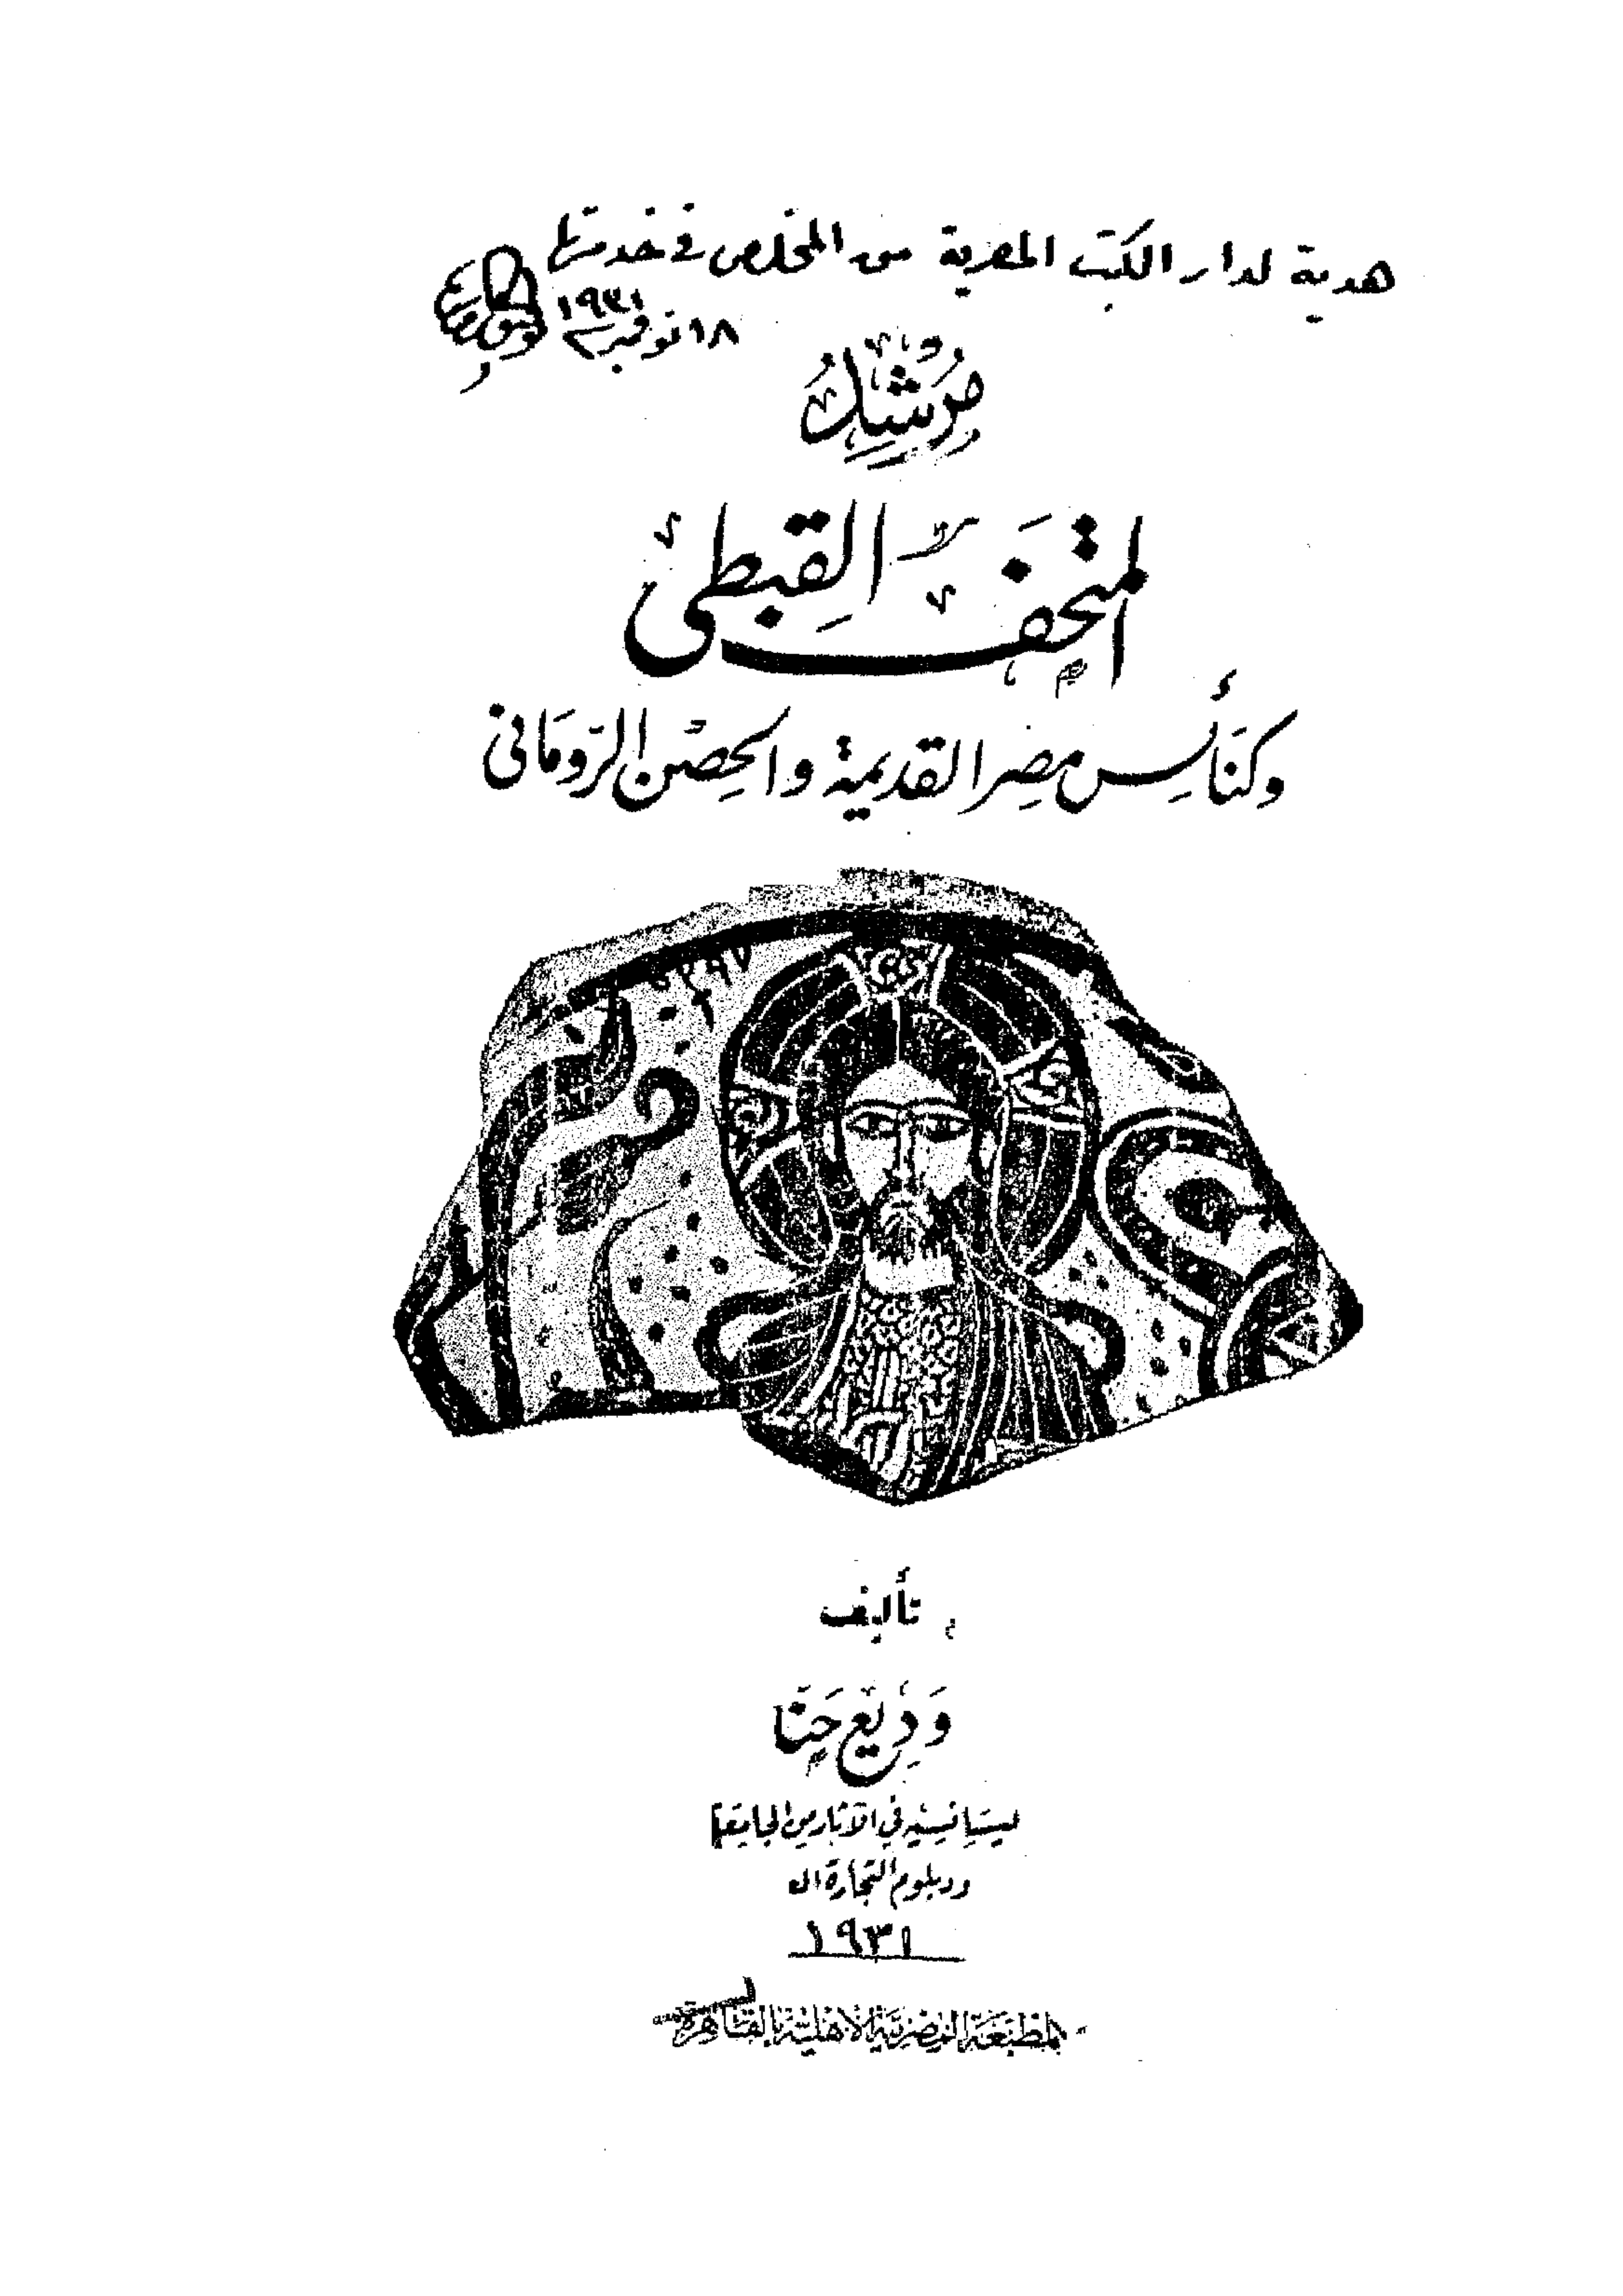 هدية لدار الكتب المصرية من المخلص فى خدمتها
١٨ نوفمبر ١٩٣١
مُرْشِدُ
المتحَف القِبطى
وكنَائِس مصِر القديمة والحِصْن الرّومَانى
تأليف
وَدِيْع حَنّا
ليسَانسيه في الآثار من الجامعة
ودبلوم التجارة ال
١٩٣١
المطبَعَة المِصْريَّة الأهليَّة بالقاهرة